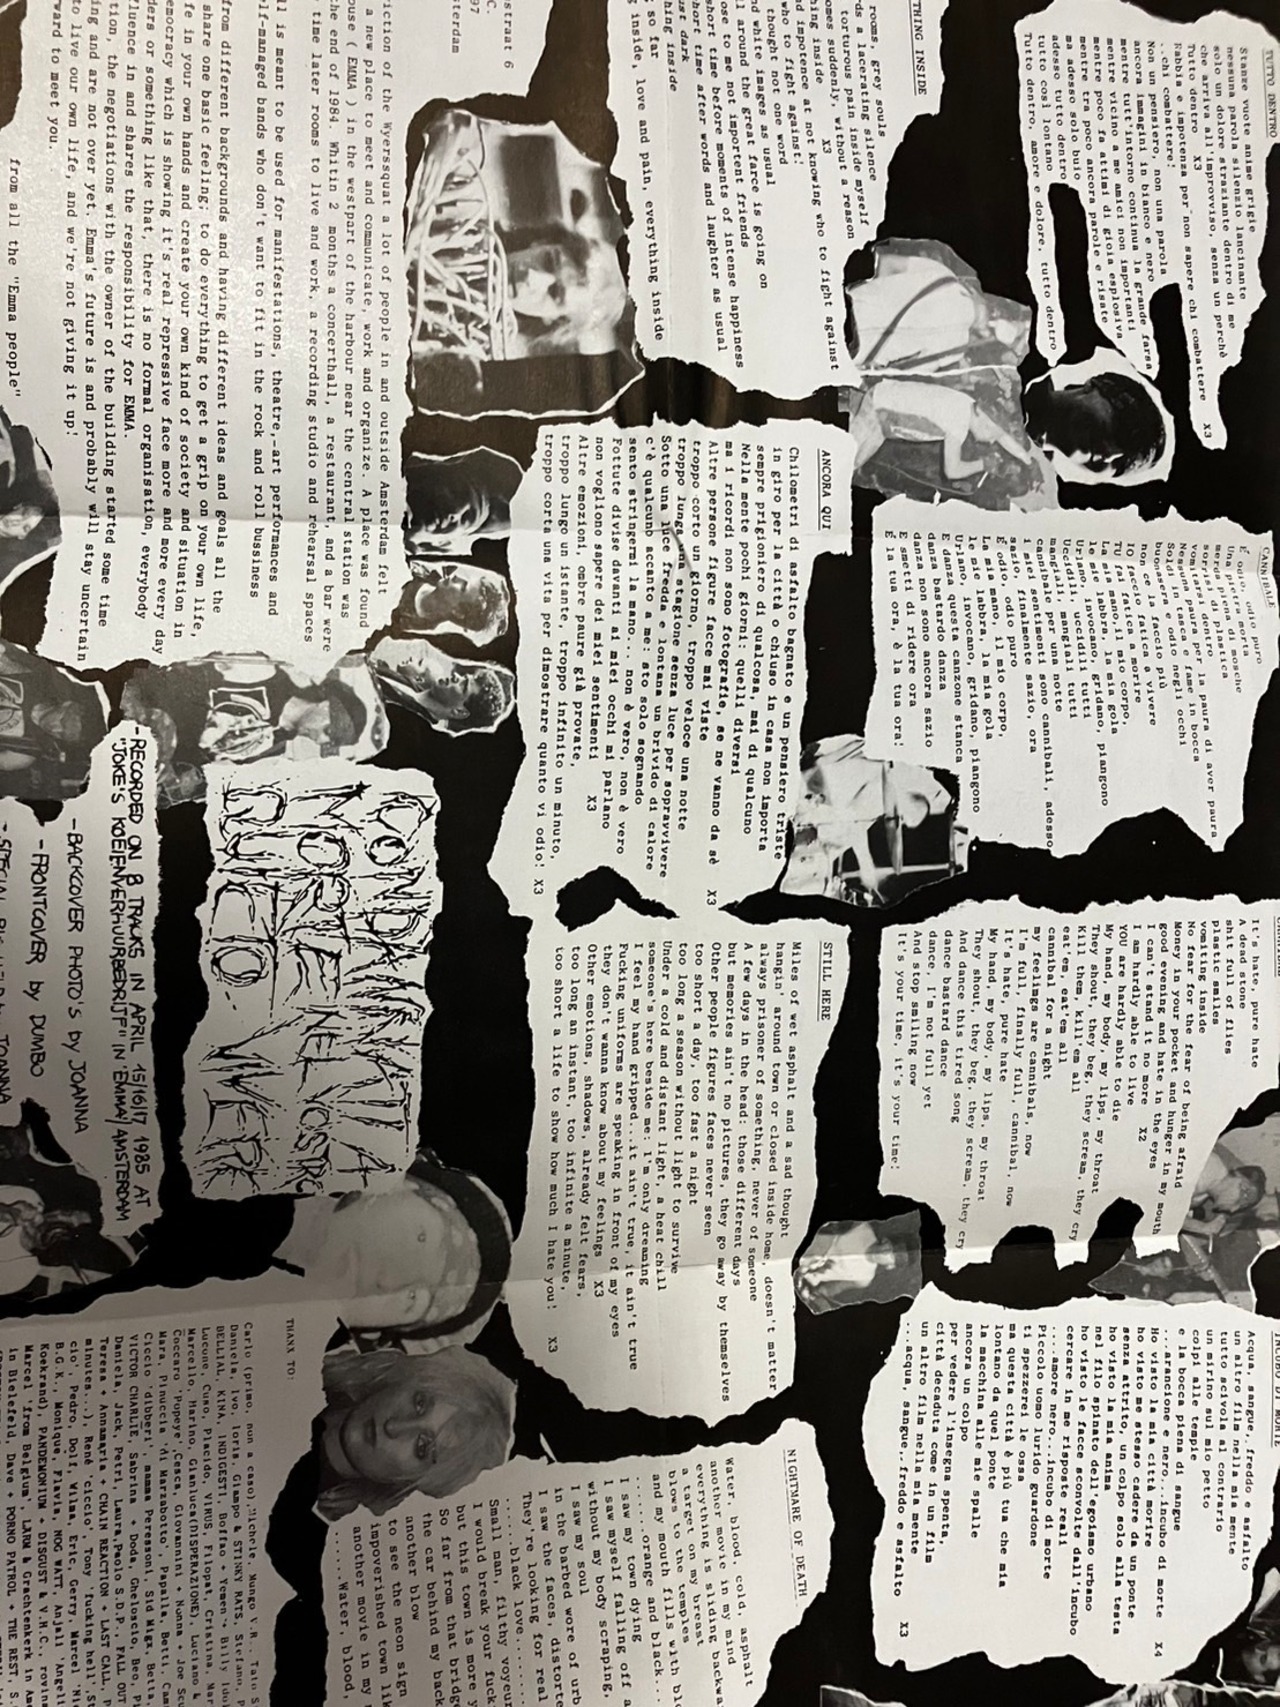 TUTTO DENTRO
Stanze vuote anime grigie
nessuna parola silenzio lancinante
solo un dolore straziante dentro di me
che arriva all'improvviso, senza un perchè
Tutto dentro X3
Rabbia e impotenza per non sapere chi combattere
..chi combattere: X3
Non un pensiero, non una parola
ancora immagini in bianco e nero
mentre tutt'intorno continua la grande farsa
mentre vicino a me amici non importanti
mentre poco fa attimi di gioia esplosiva
mentre tra poco ancora parole e risate
ma adesso solo buio
adesso tutto dentro
tutto così lontano
Tutto dentro, amore e dolore, tutto dentro
THING INSIDE
rooms, grey souls
rds a lacerating silence
torturous pain inside myself
omes suddenly, without a reason
hing inside X3
nd impotence at not knowing who to fight against
who to fight against!
thought not one word
nd white images as usual
ll around the great farce is going on
ose to me not importent friends
short time before moments of intense happiness
hort time after words and laughter as usual
ust dark
hing inside
so far
g inside, love and pain, everything inside
CANNIBALE
È odio, odio puro
Una pietra morta
merda piena di mosche
sorrisi di plastica
vomitarsi dentro
Nessuna paura per la paura di aver paura
Soldi in tasca e fame in bocca
buonasera e odio negli occhi
non ce la faccio più
IO faccio fatica a vivere
TU fai fatica a morire
La mia mano, il mio corpo,
le mie labbra, la mia gola
Urlano, invocano, gridano, piangono
Uccidili, uccidili tutti
mangiali, mangiali tutti
cannibale per una notte
i miei sentimenti sono cannibali, adesso
sazio, finalmente sazio, ora
È odio, odio puro
La mia mano, il mio corpo,
le mie labbra, la mia gola
Urlano, invocano, gridano, piangono
E danza questa canzone stanca
danza bastardo danza
danza non sono ancora sazio
E smetti di ridere ora
È la tua ora, è la tua ora!
ANCORA QUI
Chilometri di asfalto bagnato e un pensiero triste
in giro per la città o chiuso in casa non importa
sempre prigioniero di qualcosa, mai di qualcuno
Nella mente pochi giorni: quelli diversi
ma i ricordi non sono fotografie, se ne vanno da sè
Altre persone figure facce mai viste X3
troppo corto un giorno, troppo veloce una notte
troppo lunga una stagione senza luce per sopravvivere
Sotto una luce fredda e lontana un brivido di calore
c'è qualcuno accanto a me: sto solo sognando
sento stringermi la mano... non è vero, non è vero
Fottute divise davanti ai miei occhi mi parlano
non vogliono sapere dei miei sentimenti X3
Altre emozioni, ombre paure già provate,
troppo lungo un istante, troppo infinito un minuto,
troppo corta una vita per dimostrare quanto vi odio! X3
It's hate, pure hate
A dead stone
shit full of flies
plastic smiles
vomiting inside
No fear for the fear of being afraid
Money in your pocket and hunger in my mouth
good evening and hate in the eyes
I can't stand it no more X2
I am hardly able to live
YOU are hardly able to die
My hand, my body, my lips, my throat
They shout, they beg, they scream, they cry
Kill them, kill'em all
eat'em, eat'em all
cannibal for a night
my feelimgs are cannibals, now
I'm full, finally full, cannibal, now
It's hate, pure hate
My hand, my body, my lips, my throat
They shout, they beg, they scream, they cry
And dance this tired song
dance bastard dance
dance, I'm not full yet
And stop smiling now
It's your time, it's your time!
STILL HERE
Miles of wet asphalt and a sad thought
hangin' around town or closed inside home, doesn't matter
always prisoner of something, never of someone
A few days in the head: those different days
but memories ain't no pictures, they go away by themselves
Other people figures faces never seen
too short a day, too fast a night
too long a season without light to survive
Under a cold and distant light, a heat chill
someone's here beside me: I'm only dreaming
I feel my hand gripped...it ain't true, it ain't true
Fucking uniforms are speaking in front of my eyes
they don't wanna know about my feelings X3
Other emotions, shadows, already felt fears,
too long an instant, too infinite a minute,
too short a life to show how much I hate you! X3
INCUBO DI MORTE
Acqua, sangue, freddo e asfalto
un altro film nella mia mente
tutto scivola al contrario
un mirino sul mio petto
colpi alle tempie
e la bocca piena di sangue
...arancione e nero...incubo di morte X4
Ho visto la mia città morire
ho visto me stesso cadere da un ponte
senza attrito, un colpo solo alla testa
ho visto la mia anima
nel filo spinato dell'egoismo urbano
ho visto le facce sconvolte dall'incubo
cercare in me risposte reali
....amore nero...incubo di morte
Piccolo uomo lurido guardone
ti spezzerei le ossa
ma questa città è più tua che mia
lontano da quel ponte
la macchina alle mie spalle
ancora un colpo
per vedere l'insegna spenta,
città decaduta come in un film
un altro film nella mia mente
...acqua, sangue, freddo e asfalto X3
NIGHTMARE OF DEATH
Water, blood, cold, asphalt
another movie in my mind
everything is sliding backwa
a target on my breast
blows to the temples
and my mouth fills with blo
......orange and black...
I saw my town dying
I saw myself falling off a
without my body scraping,
I saw my soul
in the barbed wore of urb
I saw the faces, distorte
They're looking for real
......black love........
Small man, filthy voyeur
I would break your fuck
but this town is more
So far from that bridg
the car behind my back
another blow
to see the neon sign
impoverished town lik
another movie in my m
......Water, blood,
straat 6
C.
97
terdam
viction of the Wyerssquat a lot of people in and outside Amsterdam felt
a new place to meet and communicate, work and organize. A place was found
ouse ( EMMA ) in the westpart of the harbour near the central station was
the end of 1984. Whitin 2 months a concerthall, a restaurant, and a bar were
time later rooms to live and work, a recording studio and rehearsal spaces
ll is meant to be used for manifestations, theatre,-art performances and
lf-managed bands who don't want to fit in the rock and roll bussiness
from different backgrounds and having different ideas and goals all the
share one basic feeling; to do everything to get a grip on your own life,
fe in your own hands and create your own kind of society and situation in
emocracy which is showing it's real repressive face more and more every day
ders or something like that, there is no formal organisation, everybody
fluence in and shares the responsibility for EMMA.
tion, the negotiations with the owner of the building started some time
ing and are not over yet. Emma's future is and probably will stay uncertain
to live our own life, and we're not giving it up!
ward to meet you.
from all the "Emma people"
-RECORDED ON 8 TRACKS IN APRIL 15/16/17, 1985 AT
"JOKE'S KOEIENVERHUURBEDRIJF" IN 'EMMA/AMSTERDAM
-BACKCOVER PHOTO'S by JOANNA
- FRONTCOVER by DUMBO
JOANNA
THANX TO:
Carlo (primo, non a caso),
Daniela, Ivo, Ioris, Giampo & STINKY RATS, Stefano, P
BELLIAL, KINA, INDIGESTI, Boffao + Yemen + Billy Idol
Lucone, Cuso, Placido, VIRUS, Filopat, Cristina, Mar
Marcello, Marino, Gianluca(DISPERAZIONE), Luciano &
Coccaro 'Popeye', Cesca, Giovannini + Nonna + Joe Sc
Mara, Pinuccia 'di Marzabotto', Papalla, Betti, Cam
Ciccio 'dibberi', mamma Peressoni, Sid Migx, Betta,
VICTOR CHARLIE, Sabrina + Doda, Cheloscio, Beo, Pi
Daniela, Jack, Petri, Laura, Paolo S.D.P., FALL OUT
Teresa + Annamaria + CHAIN REACTION + LAST CALL, P
minutes...), Renè 'ciccio', Tony 'fucking hell' St
cio', Pedro, Dolf, Wilma, Eric, Gerry, Marcel 'Ni
B.G.K., Monique, Flavia, NOG WATT, Anjali 'Angeli
Koekrand), PANDEMONIUM + DISGUST & V.H.C., rovina
Marcel 'from Belgium', LARM & Grachtenkerk in Am
in Bielefeld, Dave + PORNO PATROL + THE REST, S.